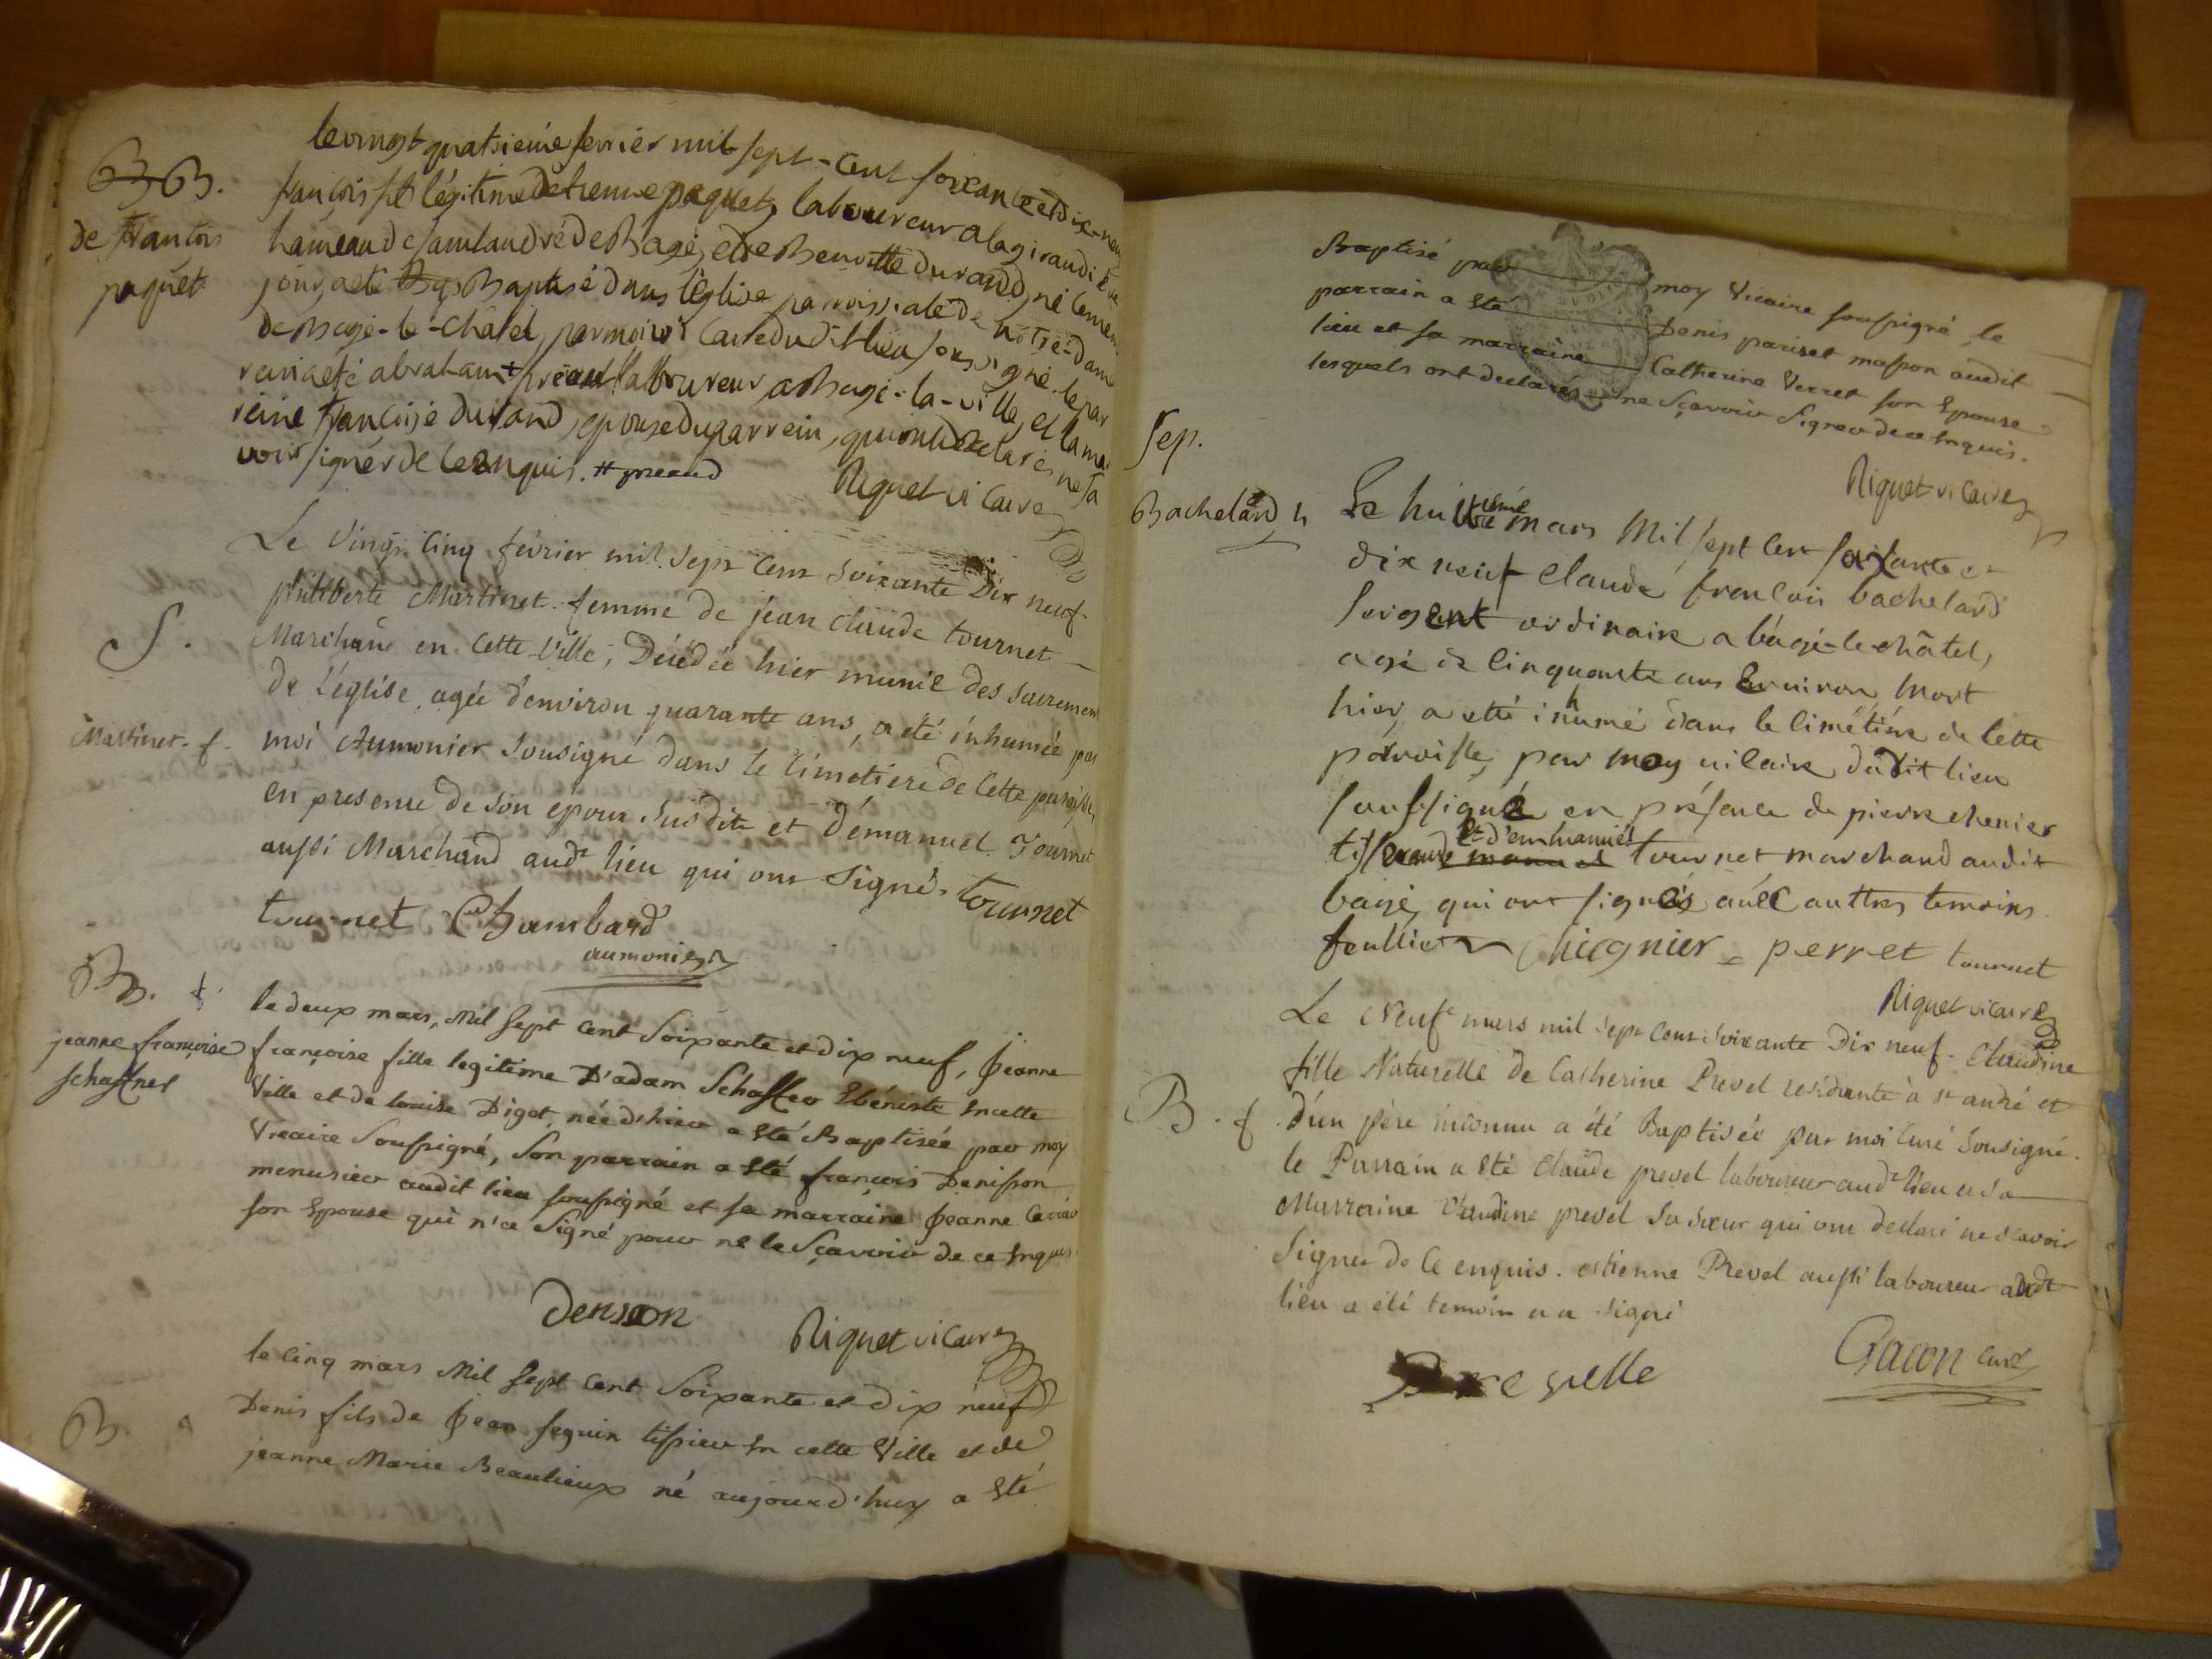 B B.
de françois
paquet
le vingt quatrieme ferrier mil sept-cent soixante et dix-neuf
françois fils légitime detienne paquet, laboureur a la giraudiere
hameau de saint andré de Bagé, et de Benoitte durand, né le meme
jour, a eté Baptisé dans l'église parroissiale de notre-dame
de Bagé-le-châtel, par moi vicaire dudit lieu soussigné. le par
rein a eté abraham + préaud laboureur a Bagé-la-ville, et la mar
reine françoise durand, epouse du parrein, qui ont déclarés ne sa
voir signer de ce enquis. # preaud
Riguet vicaire
S.
Martinet. f.
Le Vingt cinq février mil sept cent soixante Dix neuf
philiberte Martinet femme de jean claude tournet
Marchand en cette ville, Décédée hier munie des sacremen
de l'église, agée d'environ quarante ans, a été inhumée par
moi Aumonier sousigné dans le cimetiere de cette paroisse
en presence de son époux susdite et d'emanuel Tournet
aussi Marchand audt lieu qui ont signé. tournet
tournet Chambard
aumonier
B. f.
jeanne françoise
schaffner
le deux mars, Mil sept cent soixante et dix neuf, jeanne
françoise fille legitime D'adam Schaffer Ebéniste en cette
Ville et de louise Digot, née d'hier a Eté Baptisée par moy
Vicaire soussigné, son parrain a Eté françois Denisson
menusier audit lieu soussigné et sa marraine jeanne
son Epouse qui n'a signé pour ne le sçavoir de ce Enquis.
denison
Riguet vicaire
B.
le cinq mars Mil sept cent soixante et dix neuf
Denis fils de jean seguin tissier en cette Ville et de
jeanne Marie Beaulieux né aujourd'huy a Eté
Baptisé par moy Vicaire soussigné le
parrain a Eté Denis pariset masson audit
lieu et sa marraine Catherine Verret son Epouse
lesquels ont declarés ne sçavoir signer de ce Enquis.
Riguet vicaire
Sep.
Bachelard h
Le huitieme mars Mil sept cent soixante et
dix neuf claude françois bachelard
sergent ordinaire a bâgé-le-châtel,
agé de cinquante ans Environ, mort
hier, a etté inhumé dans le cimétiére de cette
parroisse, par moy vicaire dudit lieu
soussigné en présence de pierre chenier
et d'emmanuel
tisserand manuel tournet marchand audit
baigé, qui ont signés avec auttres temoins.
feullier Chiegnier perret tournet
Riguet vicaire
B. f.
Le Neufe mars mil sept cent soixante Dix neuf. Claudine
fille Naturelle de Catherine Prevel residante à st andré et
d'un père inconnu a été Baptisée par moi curé sousigné.
le Parrain a été Claude prevel laboureur audt lieu et sa
Marraine Claudine prevel sa sœur qui ont declaré ne scavoir
signer de ce enquis. estienne Prevel aussi laboureur audt
lieu a été temoin et a signé
Gacon curé